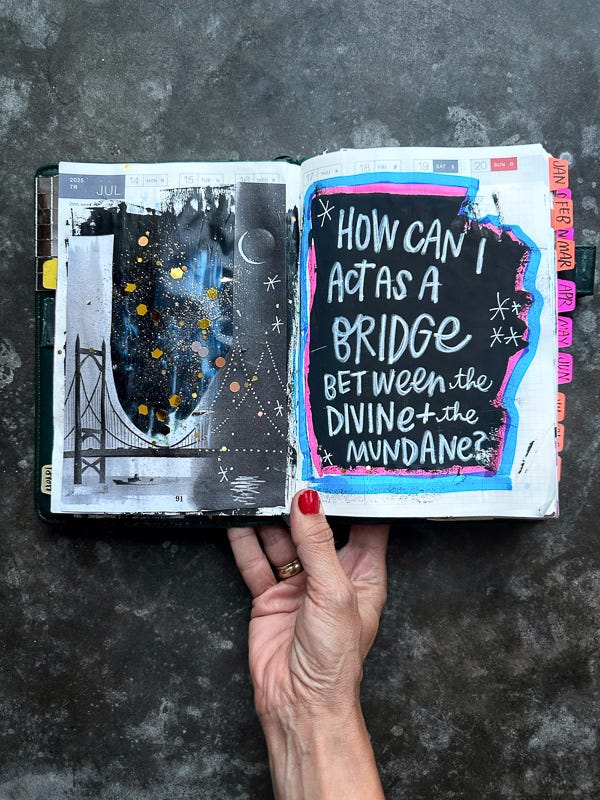 2025
7月
JUL
14 MON 月
15 TUE 火
16 WED 水
91
HELP!
17
18 FRI 金
19 SAT 土
20 SUN 日
HOW CAN I
ACT AS A
BRIDGE
BETWEEN the
DIVINE + the
MUNDANE?
JAN
FEB
MAR
APR
MAY
JUN